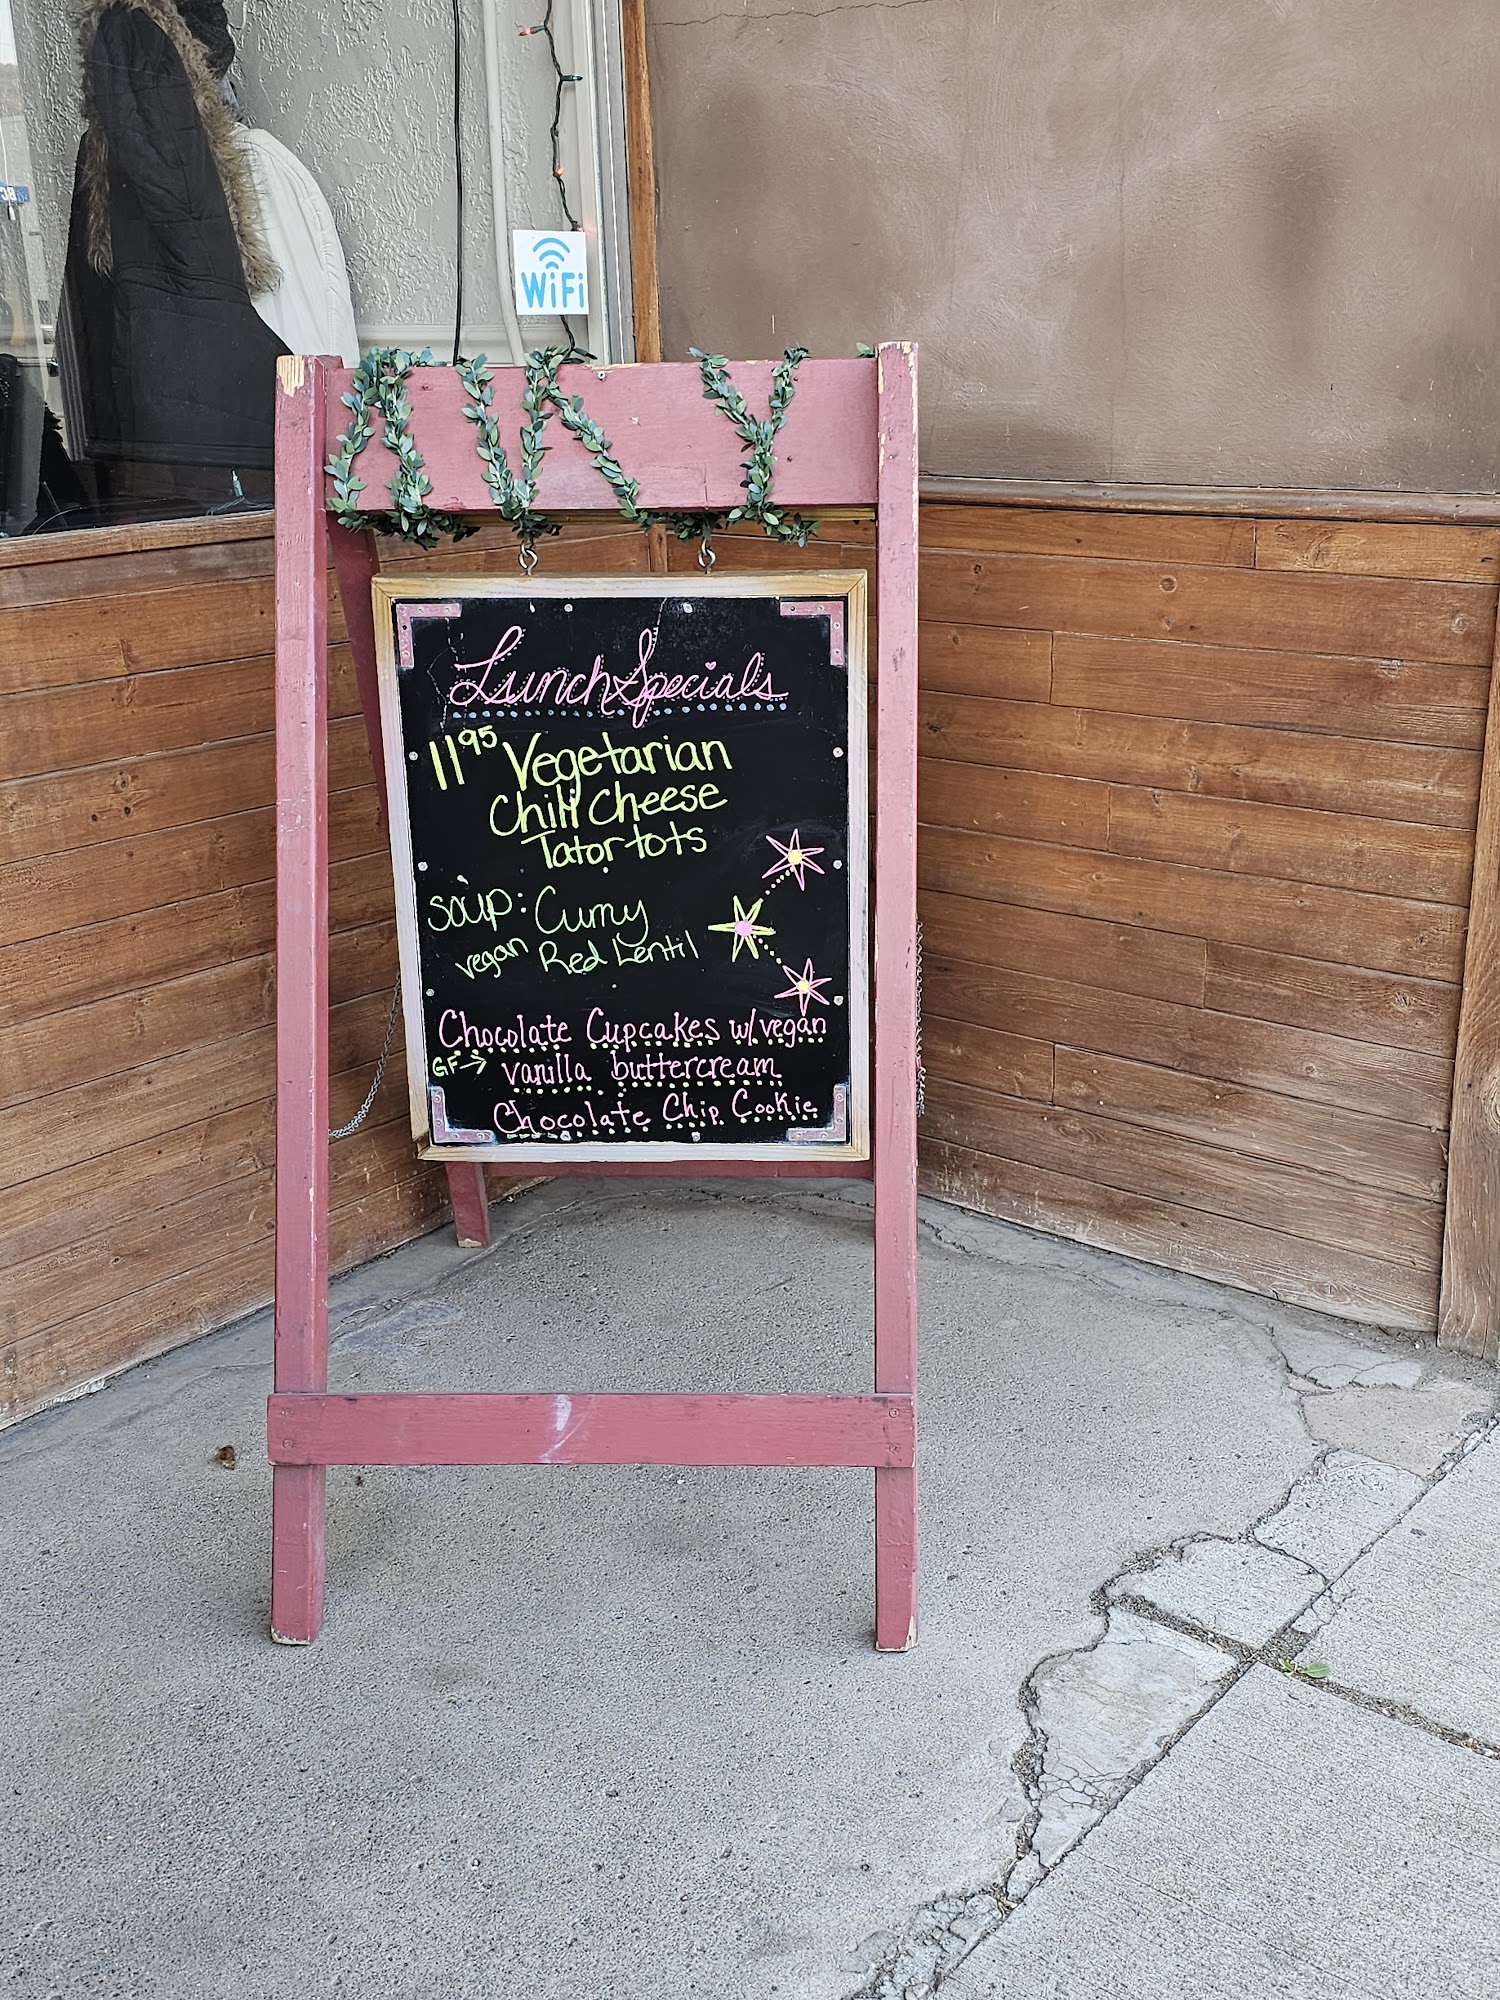 WiFi
Lunch Specials
11 95 Vegetarian
Chili Cheese
Tator tots
Soup: Curry
vegan Red Lentil
Chocolate Cupcakes w/vegan
GF → vanilla buttercream
Chocolate Chip Cookie